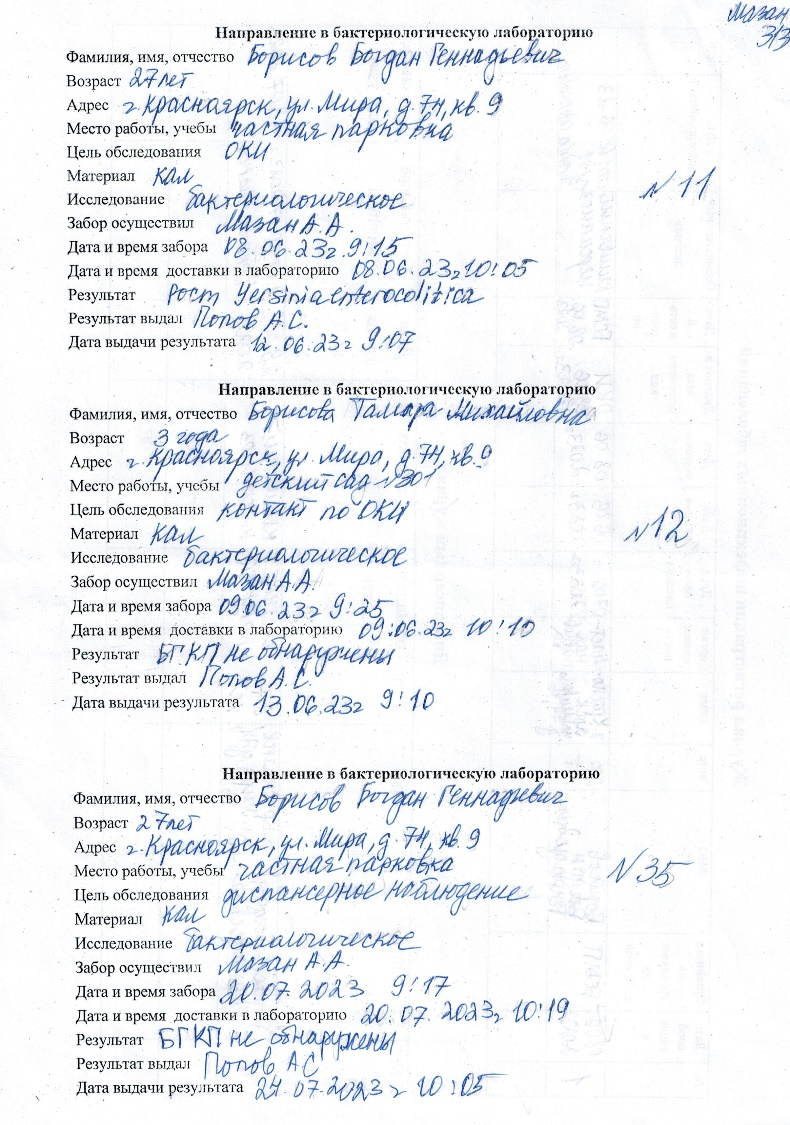 Мазан
313
Направление в бактериологическую лабораторию
Фамилия, имя, отчество Борисов Богдан Геннадьевич
Возраст 27 лет
Адрес г. Красноярск, ул. Мира, д. 74, кв. 9
Место работы, учебы частная парковка
Цель обследования ОКИ
Материал кал
Исследование бактериологическое
№ 11
Забор осуществил Мазан А.А.
Дата и время забора 08.06.23г 9:15
Дата и время доставки в лабораторию 08.06.23г 10:05
Результат Рост Yersinia enterocolitica
Результат выдал Попов А.С.
Дата выдачи результата 12.06.23г 9:07
Направление в бактериологическую лабораторию
Фамилия, имя, отчество Борисова Тамара Михайловна
Возраст 3 года
Адрес г. Красноярск, ул. Мира, д. 74, кв. 9
Место работы, учебы детский сад №301
Цель обследования контакт по ОКИ
Материал кал
№12
Исследование бактериологическое
Забор осуществил Мазан А.А.
Дата и время забора 09.06.23г 9:25
Дата и время доставки в лабораторию 09.06.23г 10:10
Результат БГКП не обнаружены
Результат выдал Попов А.С.
Дата выдачи результата 13.06.23г 9:10
Направление в бактериологическую лабораторию
Фамилия, имя, отчество Борисов Богдан Геннадиевич
Возраст 27 лет
Адрес г. Красноярск, ул. Мира, д. 74, кв. 9
Место работы, учебы частная парковка
№35
Цель обследования диспансерное наблюдение
Материал кал
Исследование бактериологическое
Забор осуществил Мазан А.А.
Дата и время забора 20.07.2023 9:17
Дата и время доставки в лабораторию 20.07.2023г 10:19
Результат БГКП не обнаружены
Результат выдал Попов АС
Дата выдачи результата 24.07.2023г 10:05